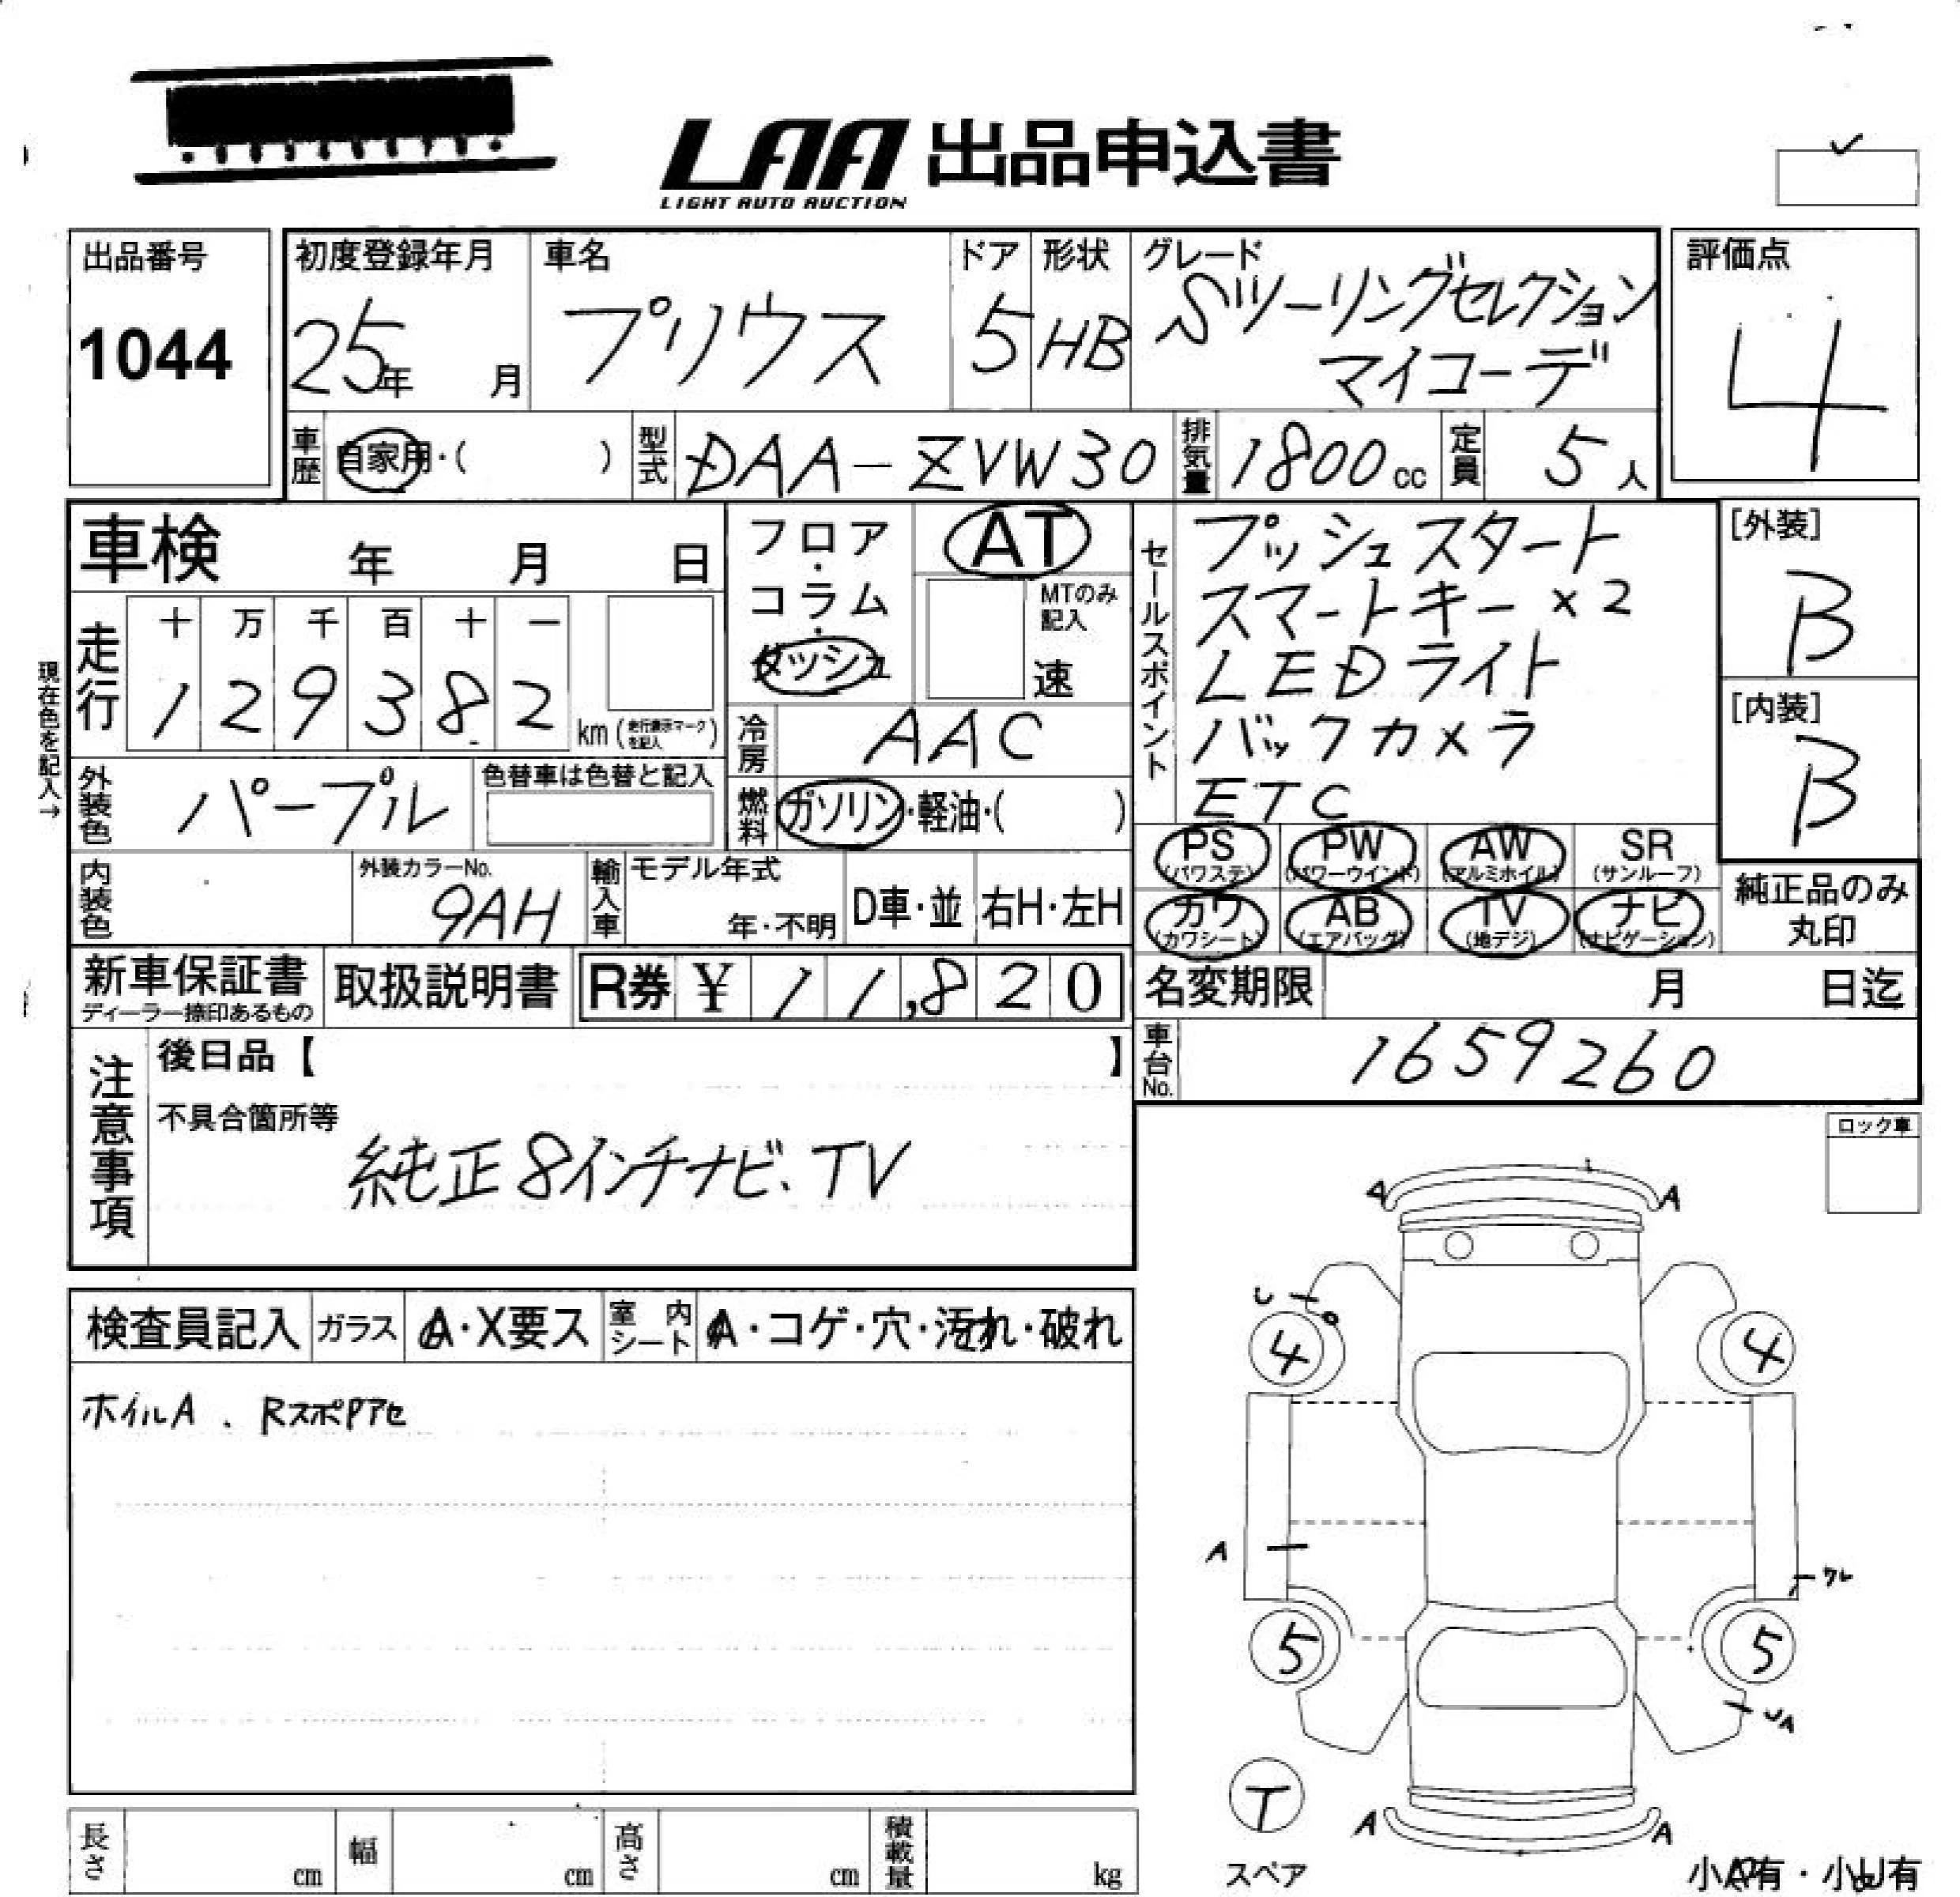 LAA 出品申込書
LIGHT AUTO AUCTION
出品番号
1044
初度登録年月
25年 月
車名
プリウス
ドア
5
形状
HB
グレード
Sツーリングセレクション
マイコーデ
評価点
4
車歴
自家用・( )
型式
DAA-ZVW30
排気量
1800cc
定員
5人
車検 年 月 日
走行
十 万 千 百 十 一
1 2 9 3 8 2
km(走行表示マークを記入)
現在色を記入→
フロア・コラム・ダッシュ
AT
MTのみ記入
速
冷房
AAC
燃料
ガソリン・軽油・( )
外装色
パープル
色替車は色替と記入
内装色
外装カラーNo.
9AH
輸入車
モデル年式
年・不明
D車・並
右H・左H
セールスポイント
プッシュスタート
スマートキー×2
LEDライト
バックカメラ
ETC
[外装]
B
[内装]
B
PS (パワステ)
PW (パワーウインド)
AW (アルミホイル)
SR (サンルーフ)
カワ (カワシート)
AB (エアバッグ)
TV (地デジ)
ナビ (ナビゲーション)
純正品のみ
丸印
新車保証書
ディーラー捺印あるもの
取扱説明書
R券 ¥ 11,820
名変期限 月 日迄
車台No.
1659260
注意事項
後日品【 】
不具合箇所等
純正8インチナビ、TV
ロック車
検査員記入
ガラス
A・X要ス
室内シート
A・コゲ・穴・汚れ・破れ
ホイルA . RスポPアセ
A A
4 4
A
ワレ
5 5
UA
T
スペア
A A
小A有・小U有
長さ cm
幅 cm
高さ cm
積載量 kg